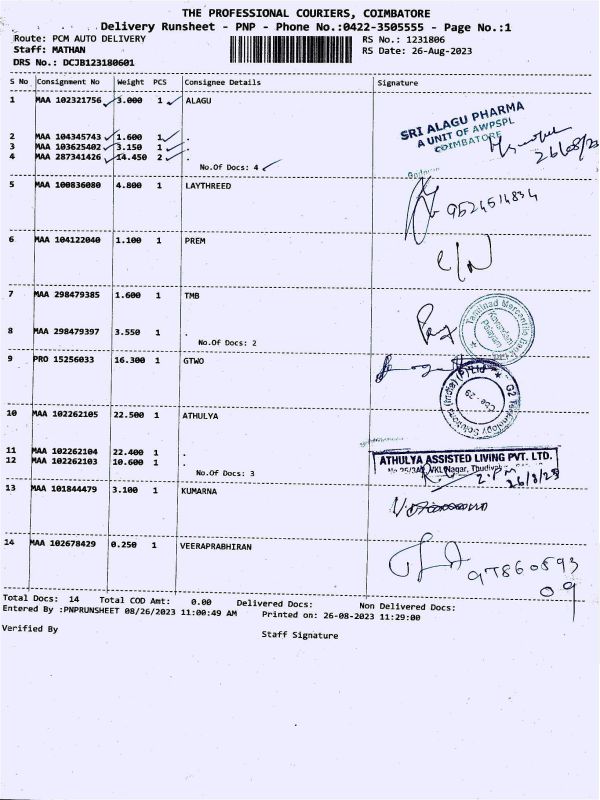 THE PROFESSIONAL COURIERS, COIMBATORE
Delivery Runsheet - PNP - Phone No.:0422-3505555 - Page No.:1
Route: PCM AUTO DELIVERY
RS No.: 1231806
Staff: MATHAN
RS Date: 26-Aug-2023
DRS No.: DCJB123180601
S No Consignment No Weight PCS Consignee Details Signature
1 MAA 102321756 3.000 1 ALAGU
SRI ALAGU PHARMA
A UNIT OF AWPSPL
COIMBATORE
2 MAA 104345743 1.600 1 .
3 MAA 103625402 3.150 1 .
4 MAA 287341426 14.450 2 .
No.Of Docs: 4
5 MAA 100836080 4.800 1 LAYTHREED
9524514834
6 MAA 104122040 1.100 1 PREM
7 MAA 298479385 1.600 1 TMB
Tamilnad Mercantile Bank
8 MAA 298479397 3.550 1 .
No.Of Docs: 2
9 PRO 15256033 16.300 1 GTWO
G2 Technology Solutions (India) (P) Ltd
Cbe -29
10 MAA 102262105 22.500 1 ATHULYA
11 MAA 102262104 22.400 1 .
12 MAA 102262103 10.600 1 .
No.Of Docs: 3
ATHULYA ASSISTED LIVING PVT. LTD.
VKL Nagar,
26/8/23
13 MAA 101844479 3.100 1 KUMARNA
14 MAA 102678429 0.250 1 VEERAPRABHIRAN
97860593
09
Total Docs: 14 Total COD Amt: 0.00 Delivered Docs: Non Delivered Docs:
Entered By :PNPRUNSHEET 08/26/2023 11:00:49 AM Printed on: 26-08-2023 11:29:00
Verified By
Staff Signature